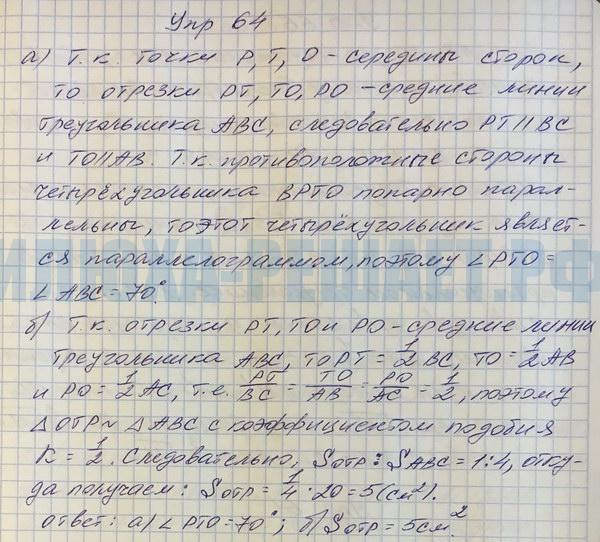 Упр 64
а) Т.к. точки P, T, O – середины сторон,
то отрезки PT, TO, PO – средние линии
треугольника ABC, следовательно PT || BC
и TO || AB. Т.к. противоположные стороны
четырёхугольника BPTO попарно парал-
лельны, то этот четырёхугольник являет-
ся параллелограммом, поэтому ∠ PTO =
∠ ABC = 70°.
б) Т.к. отрезки PT, TO и PO – средние линии
треугольника ABC, то PT = 1/2 BC, TO = 1/2 AB
и PO = 1/2 AC, т.е. PT/BC = TO/AB = PO/AC = 1/2, поэтому
△ OTP ~ △ ABC с коэффициентом подобия
K = 1/2. Следовательно, S OTP : S ABC = 1:4, отку-
да получаем: S OTP = 1/4 · 20 = 5 (см²).
ответ: а) ∠ PTO = 70°; б) S OTP = 5 см².